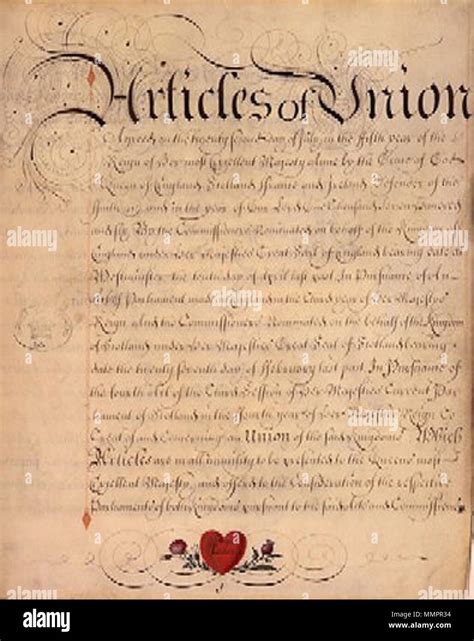 Articles of Union
Agreed on the twenty second day of July in the fifth year of the
Reign of Her most Excellent Majesty Anne by the Grace of God
Queen of England Scotland France and Ireland Defender of the
Faith &c and in the year of our Lord One thousand Seven hundred
and six By the Commissioners Nominated on behalf of the Kingdom
England under Her Majesties Great Seal of England bearing date at
Westminster the tenth day of April last past In Pursuance of
Parliament made in England in the third year of Her Majesties
Reign and the Commissioners Nominated on the behalf of the Kingdom
of Scotland under Her Majesties Great Seal of Scotland bearing
date the twenty seventh day of February last past In Pursuance of
the fourth Act of the third Session of Her Majesties Current Parli
ament of Scotland in the fourth year of Her Reign to
Treat of and Concerning an Union of the said Kingdoms Which
Articles are in all humility to be presented to the Queens most
Excellent Majesty and offered to the Consideration of the respective
Parliaments of both Kingdoms pursuant to the said Acts and Commissions
alamy
alamy
alamy
alamy
alamy
alamy
alamy
Image ID: MMPR34
www.alamy.com